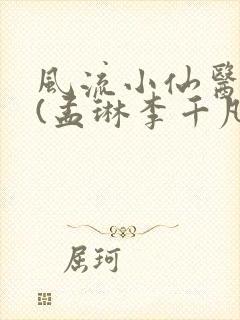 風流小仙醫
(孟琳李千凡
屈珂